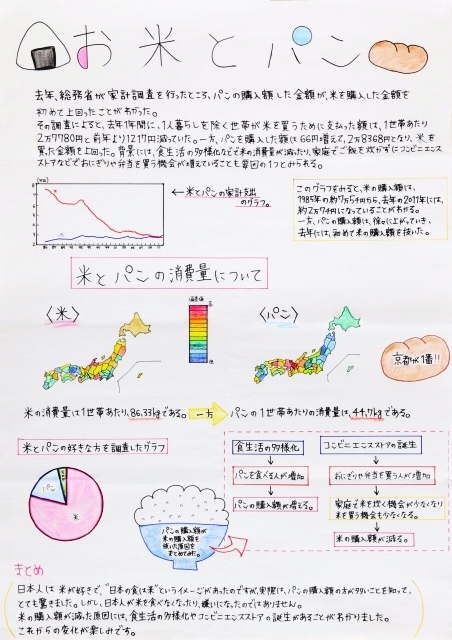 お米とパン
去年、総務省が家計調査を行ったところ、パンの購入額した金額が、米を購入した金額を
初めて上回ったことがわかった。
その調査によると、去年1年間に、1人暮らしを除く世帯が米を買うために支払った額は、1世帯あたり
2万7780円と前年より1217円減っていた。一方、パンを購入した額は66円増えて、2万8368円となり、米を
買った金額を上回った。背景には、食生活の多様化などで米の消費量が減ったり、家庭でご飯を炊かずにコンビニエンス
ストアなどでおにぎりや弁当を買う機会が増えていることも要因の1つとみられる。
(万円)
←米とパンの家計支出
のグラフ。
このグラフをみると、米の購入額は、
1985年の約7万5千円から、去年の2011年には、
約2万7千円になっていることがわかる。
一方、パンの購入額は、徐々に上がっていき、
去年には、初めて米の購入額を抜いた。
米とパンの消費量について
〈米〉
偏差値
高
低
〈パン〉
京都が1番!!
米の消費量は1世帯あたり、86.33kgである。
一方
パンの1世帯あたりの消費量は、44.7kgである。
米とパンの好きな方を調査したグラフ
パン
米
パンの購入額が
米の購入額を
抜いた原因を
まとめてみた。
食生活の多様化
パンを食べる人が増加
パンの購入額が増える。
コンビニエンスストアの誕生
おにぎりや弁当を買う人が増加
家庭で米を炊く機会が少なくなり
米を買う機会も少なくなる。
米の購入額が減る。
まとめ
日本人は米が好きで、"日本の食は米"というイメージがあったのですが、実際は、パンの購入額の方が多いことを知って、
とても驚きました。しかし、日本人が米を食べなくなったり、嫌いになったのではありません。
米の購入額が減った原因には、食生活の多様化やコンビニエンスストアの誕生があることがわかりました。
これからの変化が楽しみです。